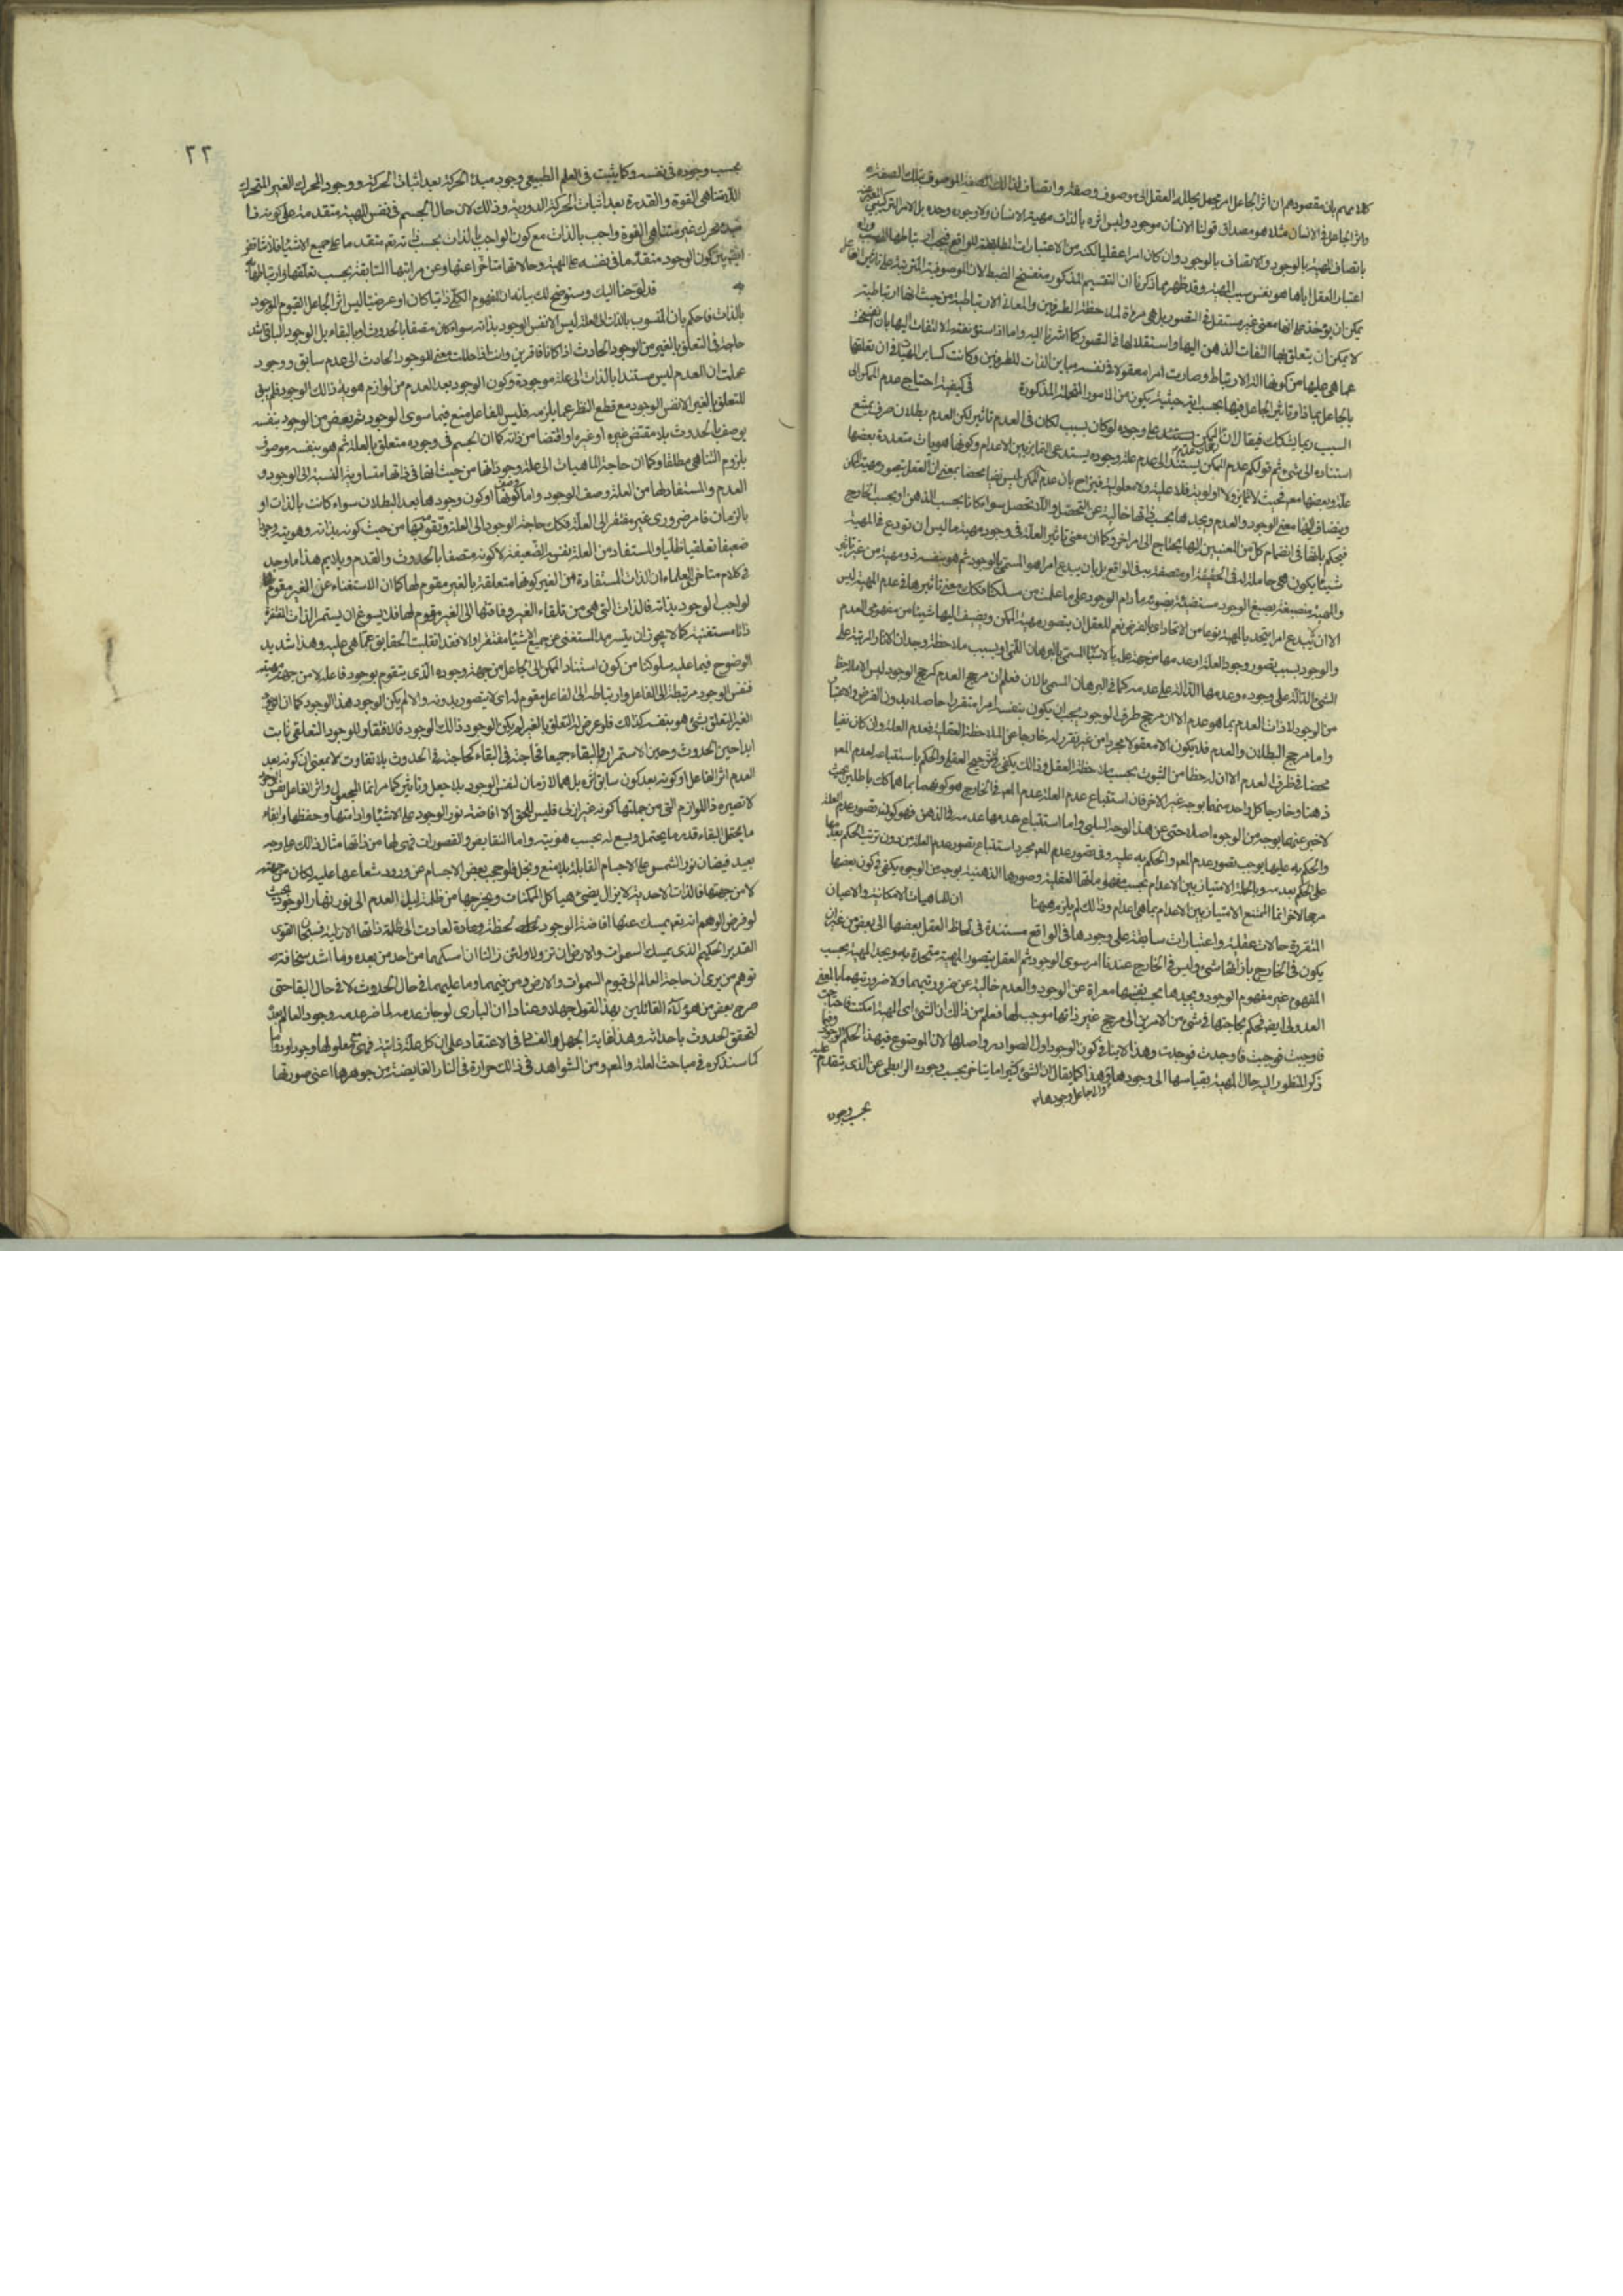 كلامهم بان مقصودهم ان اثر الجاعل امر مجمل يحلله العقل الى موصوف وصفة واتصاف لذلك الموصوف بتلك الصفة
واثر الجاعل في الانسان مثلا هو مصداق قولنا الانسان موجود وليس اثره بالذات مهية الانسان ولا وجوده وحده بل الامر التركيبي
باتصاف المهية بالوجود والاتصاف بالوجود وان كان امرا عقليا لكنه من الاعتبارات المطابقة للواقع فيجب
اعتبار العقل اياها هو نفس سبب المهية وقد ظهر مما ذكرنا ان التقسيم المذكور
يمكن ان يؤخذ على انها معنى غير مستقل في التصور بل هي مرآة لملاحظة الطرفين والمعاني الارتباطية من حيث انها ارتباطية
لا يمكن ان يتعلق بها التفات الذهن اليها واستقلالها في التصور كما اشرنا اليه واما اذا استؤنف الالتفات اليها بان
عما هي عليها من كونها آلة الارتباط وصارت امرا معقولا في نفسه مباين الذات للطرفين وكانت كساير المهيات في ان تعلقها
بالجاعل بماذا وتاثير الجاعل فيها بحسب اية حيثية يكون من الامور المحتملة المذكورة في كيفية احتياج عدم الممكن الى
السبب ربما يشكك فيقال ان وجوده لو كان بسبب لكان في العدم تاثير لكن العدم بطلان صرف يمتنع
استناده الى شيء ثم قولكم عدم الممكن يستند الى عدم علة وجوده يستدعي التمايز بين الاعدام وكونها هويات متعددة بعضها
علة وبعضها معلول فحيث لا تمايز ولا اولوية فلا علية ولا معلولية فيزاح بان عدم الممكن ليس نفيا محضا بمعنى ان العقل يتصور مهية الممكن
وينضاف اليها معنى الوجود والعدم ويجدها بحسب ذاتها خالية عن التحصل واللا تحصل سواء كانا بحسب الذهن او بحسب الخارج
فيحكم بانها في انضمام كل من المعنيين اليها يحتاج الى امر اخر وكما ان معنى تاثير العلة في وجود مهية ما ليس ان تودع في المهية
شيئا يكون هي حاملة له في الحقيقة او متصفة به في الواقع بل بان يبدع امرا هو المسمى بالوجود ثم هو بنفسه ذو مهية من غير تاثير
والمهية منصبغة بصبغ الوجود مستضيئة بضوئه ما دام الوجود على ما علمت من مسلكنا فكذلك معنى تاثيرها في عدم المهية ليس
الا ان يبدع امرا يتحد بالمهية نوعا من الاتحاد اي بالعرض نعم للعقل ان يتصور مهية الممكن ويضيف اليها شيئا من مفهومي العدم
والوجود بسبب تصور وجود العلة او عدمها من جهة علمه بالاسباب المسمى بالبرهان اللمي او بسبب ملاحظة وجدان الآثار المترتبة على
الشيء الدالة على وجوده وعدمها الدالة على عدمه كما في البرهان المسمى بالان فعلم ان مرجح العدم كمرجح الوجود ليس الا ما
من الوجود لا ذات العدم بما هو عدم الا ان مرجح طرف الوجود يجب ان يكون بنفسه امرا متقررا حاصلا بدون الفرض والاعتبار
واما مرجح البطلان والعدم فلا يكون الا معقولا مجردا من غير تقرر له خارجا عن الملاحظة العقلية فعدم العلة وان كان نفيا
محضا في ظرف العدم الا ان له حظا من الثبوت بحسب ملاحظة العقل وذلك يكفي في الترجيح العقلي والحكم باستتباعه لعدم المعلول
ذهنا وخارجا كل واحد منهما بوجه غير الاخر فان استتباع عدم العلة عدم المعلول في الخارج هو كونهما بما هما كذلك باطلين بحيث
لا خبر عنهما بوجه من الوجوه اصلا حتى عن هذا الوجه السلبي واما استتباع عدمها عدمه في الذهن فهو كونه تصور عدم العلة
والحكم به عليها يوجب تصور عدم المعلول والحكم به عليه وفي تصور عدم المعلول مجرد استتباع تصور عدم العلة من دون ترتب الحكم بعدمها
على الحكم بعدمه وبالجملة الامتياز بين الاعدام بحسب مفهوماتها العقلية وصورها الذهنية بوجه من الوجوه يكفي في كون بعضها
مرجحا لاخر انما الممتنع الامتياز بين الاعدام بما هي اعدام وذلك لم يلزم ههنا ان للماهيات الامكانية والاعيان
المتقررة حالات عقلية واعتبارات سابقة على وجودها في الواقع مستندة في لحاظ العقل بعضها الى بعض من غير ان
يكون في الخارج بازائها شيء وليس في الخارج عندنا امر سوى الوجود ثم العقل يتصور المهية متحدة به ويجد المهية بحسب
المفهوم غير مفهوم الوجود ويجدها بحسب نفسها معراة عن الوجود والعدم خالية عن ضرورتيهما ولا ضرورتيهما بالمعنى
العدولي ايضا فيحكم بحاجتها في شيء من الامرين الى مرجح غير ذاتها موجب لها فعلم من ذلك ان الشيء اي المهية امكنت فاحتاجت
فاوجبت فوجبت فاوجدت فوجدت وهذا لا ينافي كون الوجود اول الصوادر واصلها لان الموضوع في هذا الحكم
ذكر المنظور اليه حال المهية بقياسها الى وجودها والى جاعل وجودها وهذا كما يقال ان الشيء كثيرا ما يتاخر بحسب وجوده الرابطي عن الذي يتقدم عليه
بحسب وجوده
٢٣
بحسب وجوده في نفسه وكما يثبت في العلم الطبيعي وجود مبدء الحركة بعد اثبات الحركة ووجود المحرك الغير المتحرك
اللامتناهي القوة والقدرة بعد اثبات الحركة الدورية وذلك لان حال الجسم في نفس المهية متقدمة على كونه ذا
مبدء محرك غير متناهي القوة واجب بالذات مع كون الواجب بالذات بحسب ذاته تعالى متقدما على جميع الاشياء فلا تناقض
ايضا بين كون الوجود متقدما في نفسه على المهية وحالاتها متاخرا عنها وعن مراتبها السابقة بحسب تعلقها وارتباطها به
قد لوحنا اليك وسنوضح لك بيانه ان المفهوم الكلي ذاتيا كان او عرضيا ليس اثر الجاعل القيوم الوجود
بالذات فاحكم بان المنسوب بالذات الى العلة ليس الا نفس الوجود بذاته سواء كان متصفا بالحدوث او بالبقاء بل الوجود الباقي اشد
حاجة في التعلق بالغير من الوجود الحادث اذا كانا فاقرين وانت اذا حللت معنى الوجود الحادث الى عدم سابق ووجود
علمت ان العدم ليس مستندا بالذات الى علة موجودة وكون الوجود بعد العدم من لوازم هوية ذلك الوجود فلم يبق
للتعلق بالغير الا نفس الوجود مع قطع النظر عما يلزمه فليس للفاعل صنع فيما سوى الوجود ثم بعض من الوجود بنفسه
يوصف بالحدوث بلا مقتض غيره او غيره او اقتضاء من ذاته كما ان الجسم في وجوده متعلق بالعلة ثم هو بنفسه موصوف
بلزوم التناهي مطلقا وكما ان حاجة الماهيات الى علة وجوداتها من حيث انها في ذاتها متساوية النسبة الى الوجود و
العدم والمستفاد لها من العلة وصف الوجود واما كونها او كون وجودها بعد البطلان سواء كانت بالذات او
بالزمان فامر ضروري غير مفتقر الى العلة فكذلك حاجة الوجود الى العلة وتقومه بها من حيث كونه بذاته وهويته وجودا
ضعيفا تعلقيا ظليا والمستفاد من العلة نفسه الضعيفة لا كونه متصفا بالحدوث والقدم ويلايم هذا ما وجد
في كلام متاخري العلماء ان الذات المستفادة من الغير كونها متعلقة بالغير مقوم لها كما ان الاستغناء عن الغير مقوم
لواجب الوجود بذاته فالذات التي هي من تلقاء الغير وفاقتها الى الغير مقوم لها فلا يسوغ ان يستمر الذات المفتقرة
ذاتا مستغنية كما لا يجوز ان يستمر المستغني عن جميع الاشياء مفتقرا والا فقد انقلبت الحقايق عما هي عليه وهذا شديد
الوضوح فيما عليه سلوكنا من كون استناد الممكن الى الجاعل من جهة وجوده الذي يتقوم بوجود فاعله لا من جهة مهيته
فنفس الوجود مرتبطة الى الفاعل وارتباطه الى الفاعل مقوم له اي لا يتصور بدونه والا لم يكن الوجود هذا الوجود كما ان الوجود
الغير المتعلق بشيء هو بنفسه كذلك فلو عرض له التعلق بالغير لم يكن الوجود ذلك الوجود فالافتقار للوجود التعلقي ثابت
ابدا حين الحدوث وحين الاستمرار والبقاء جميعا فحاجته في البقاء كحاجته في الحدوث بلا تفاوت لا بمعنى ان كونه بعد
العدم اثر الفاعل او كونه بعد كون سابق اثره بل هما لازمان لنفس الوجود بلا جعل وتاثير كما مر انما المجعول واثر الفاعل نفس الوجود
لا تصييره ذا اللوازم التي من جملتها كونه غير ازلي فليس للحق الا افاضة نور الوجود على الاشياء وادامتها وحفظها وابقاء
ما يحتمل البقاء قدر ما يحتمل ويسع له بحسب هويته واما النقايص والقصورات فهي لها من ذاتها مثال ذلك على وجه
بعيد فيضان نور الشمس على الاجسام القابلة بلا منع وبخل فلو حجب بعض الاجسام عن ورود شعاعها عليه لكان من جهته
لا من جهتها فالذات الاحدية لا يزال يضيء هياكل الممكنات ويخرجها من ظلمة ليل العدم الى نور نهار الوجود بحيث
لو فرض الوهم انه تعالى يمسك عنها افاضة الوجود لحظة واحدة لعادت الى ظلمة ذاتها الازلية فسبحان القوي
القدير الحكيم الذي يمسك السموات والارض ان تزولا ولئن زالتا ان امسكهما من احد من بعده وما اشد سخافة
توهم من يرى ان حاجة العالم الى قيوم السموات والارض ومن فيهما وما عليهما في حال الحدوث لا في حال البقاء حتى
صرح بعض من هؤلاء القائلين بهذا القول جهلا وعنادا ان الباري لو جاز عدمه لما ضر عدمه وجود العالم بعده
لتحقق الحدوث باحداثه وهذا لغاية الجهل والغي في الاعتقاد على ان كل علة ذاتية فهي مع معلولها وجودا ودواما
كما سنذكره في مباحث العلة والمعلول ومن الشواهد في ذلك حرارة في النار الفايضة من جوهرها اعني صورتها